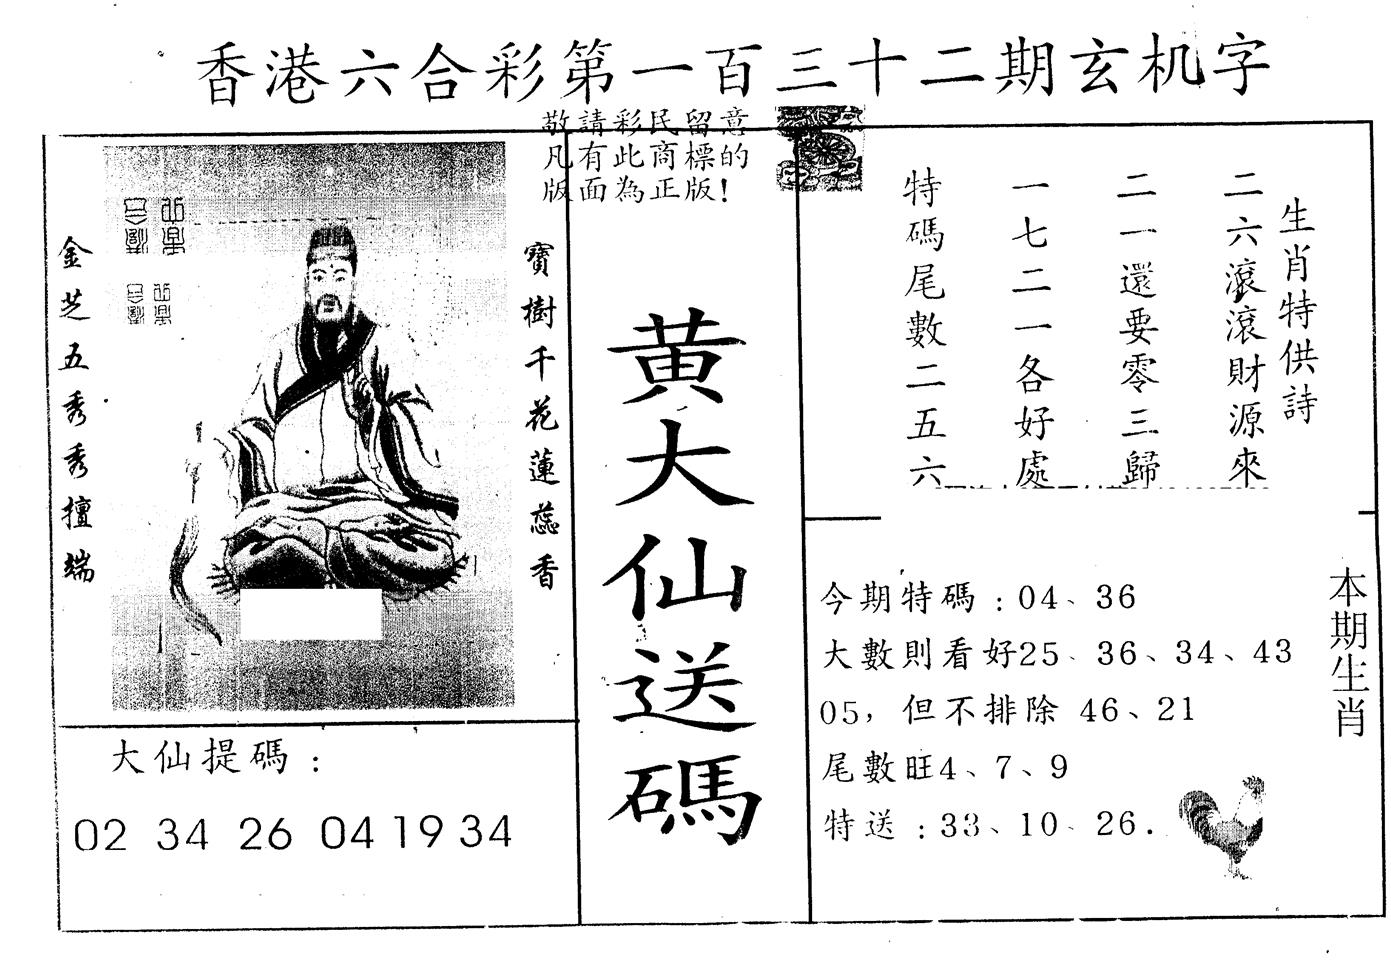 香港六合彩第一百三十二期玄机字
敬請彩民留意
凡有此商標的
版面為正版!
金芝五秀秀擅端
寶樹千花蓮蕊香
大仙提碼：
02 34 26 04 19 34
黄大仙送碼
生肖特供詩
二六滾滾財源來
二一還要零三歸
一七二一各好處
特碼尾數二五六
本期生肖
今期特碼：04、36
大數則看好25、36、34、43
05，但不排除 46、21
尾數旺4、7、9
特送：33、10、26.